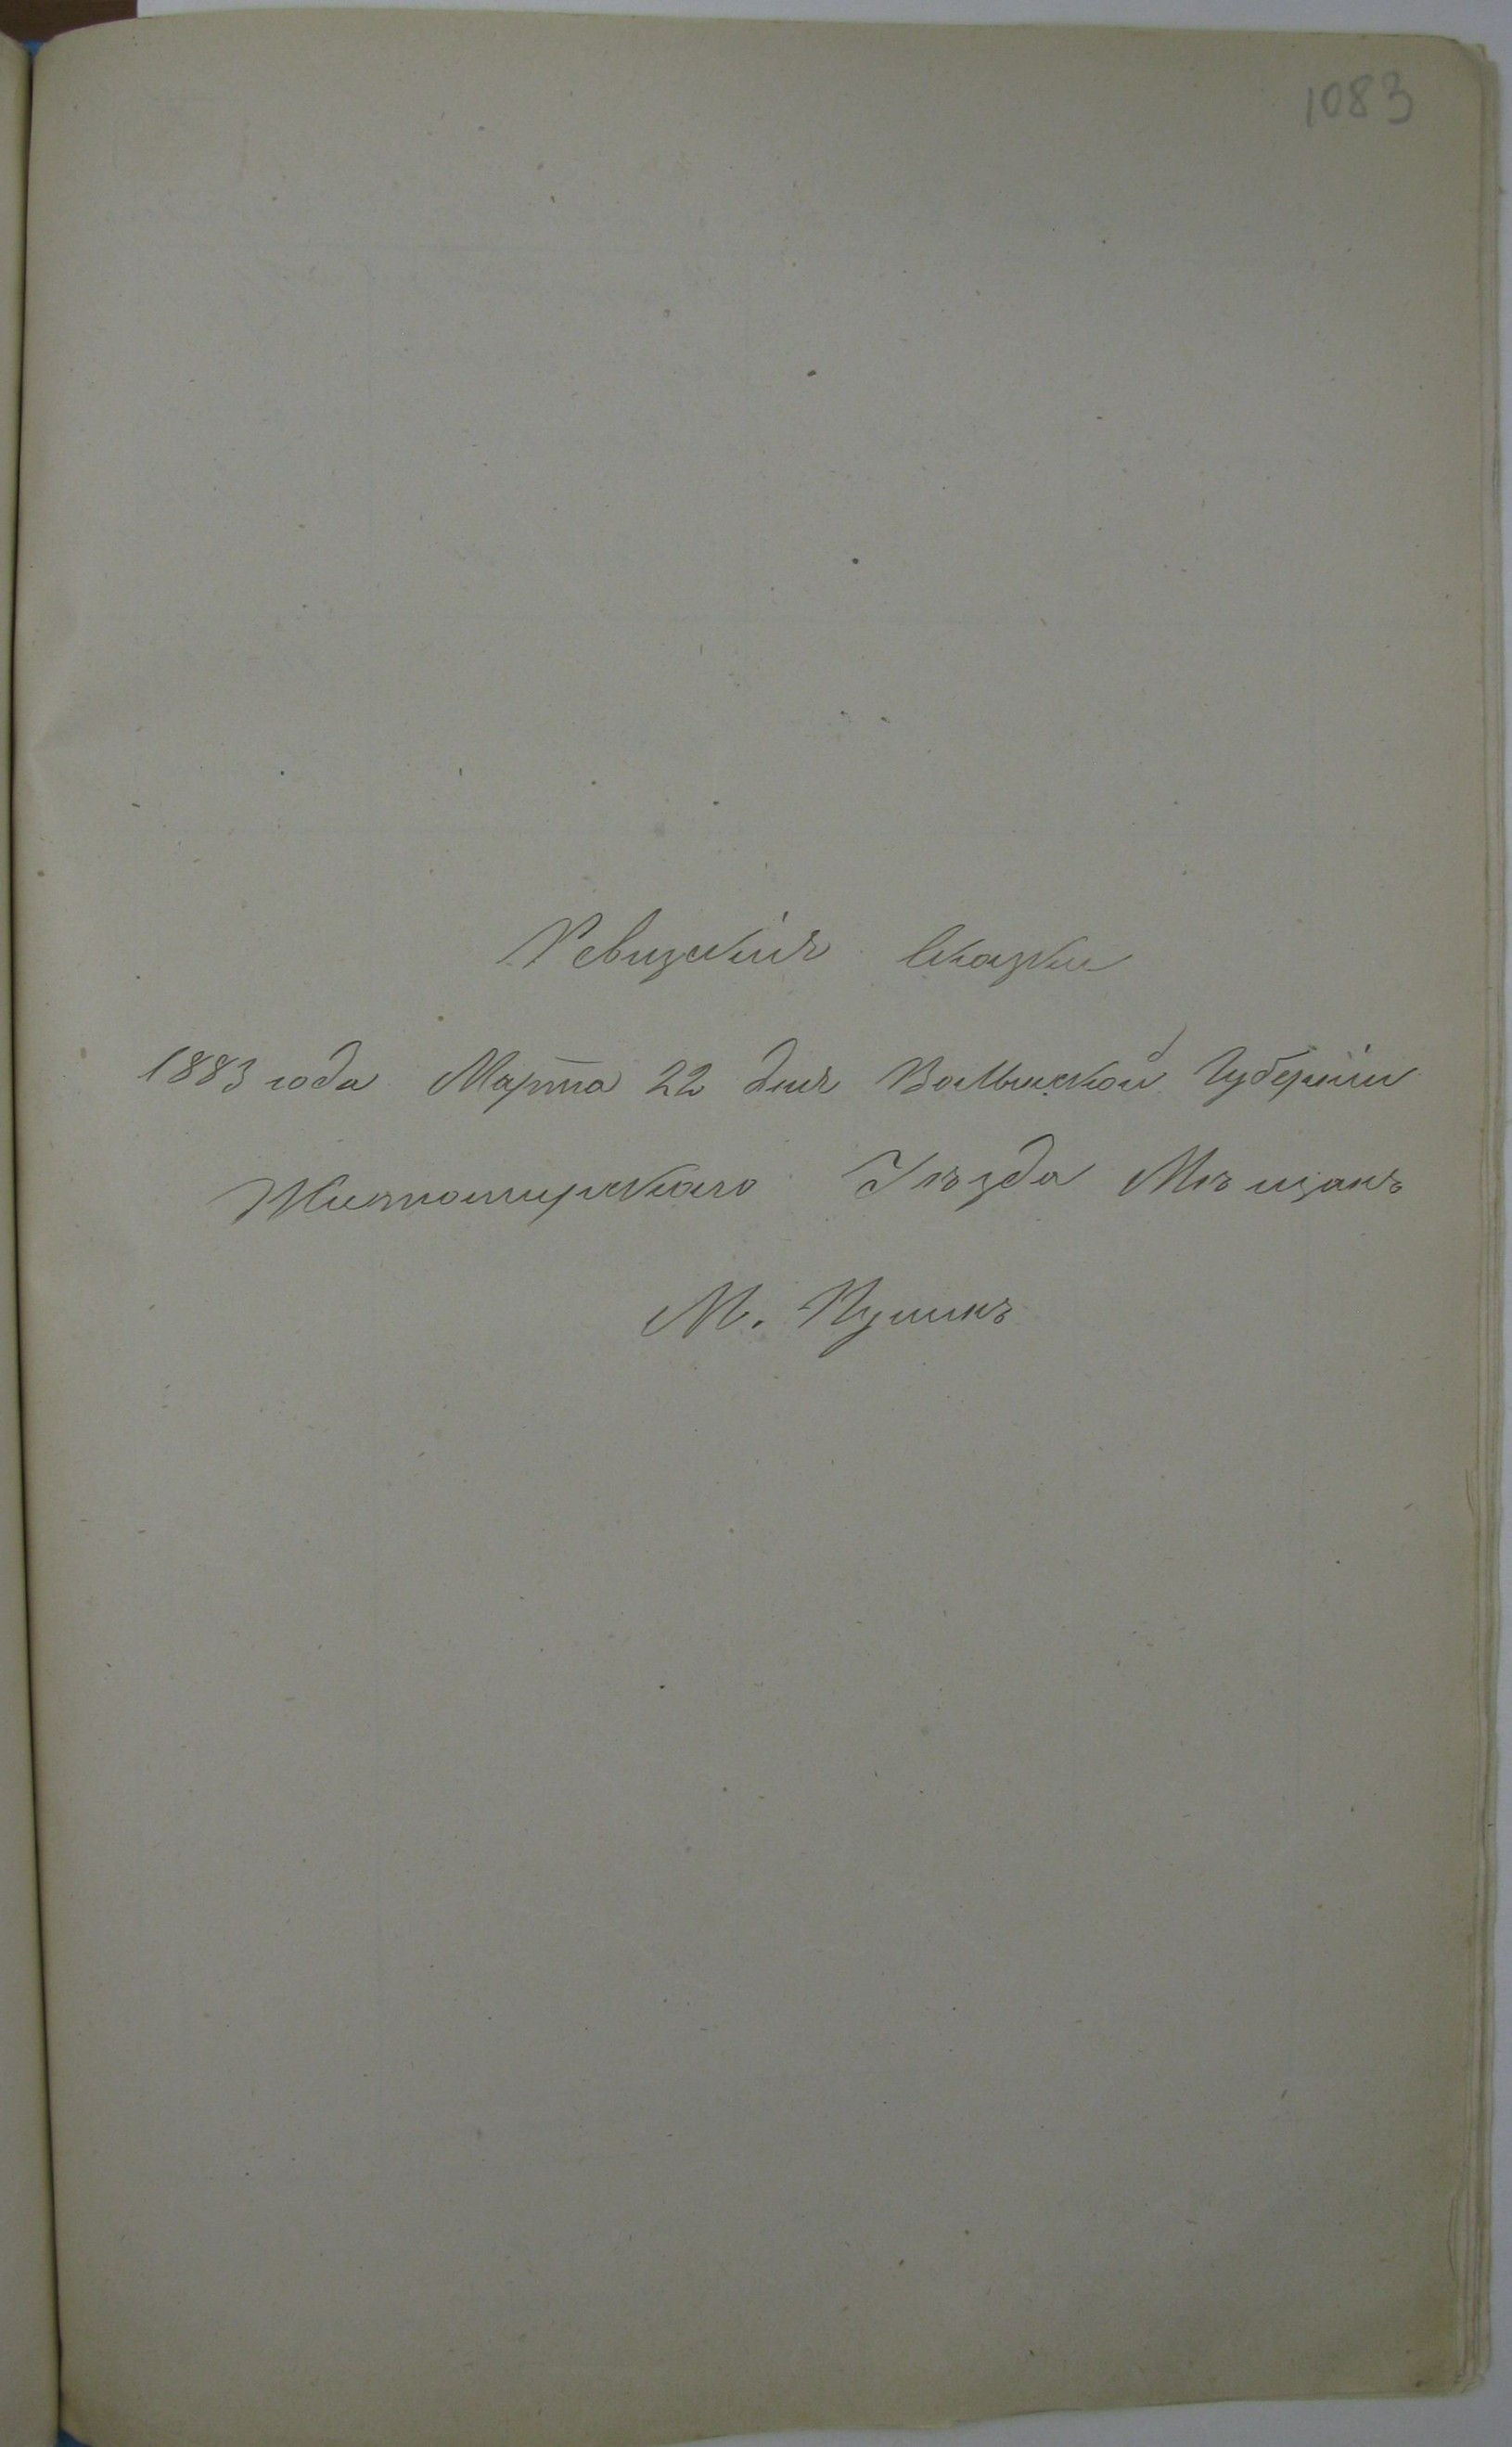 1083
Ревизскія Сказки
1883 года Марта 22 дня Волынской Губерніи
Житомирскаго Уѣзда Мѣщанъ
М. Пулинъ